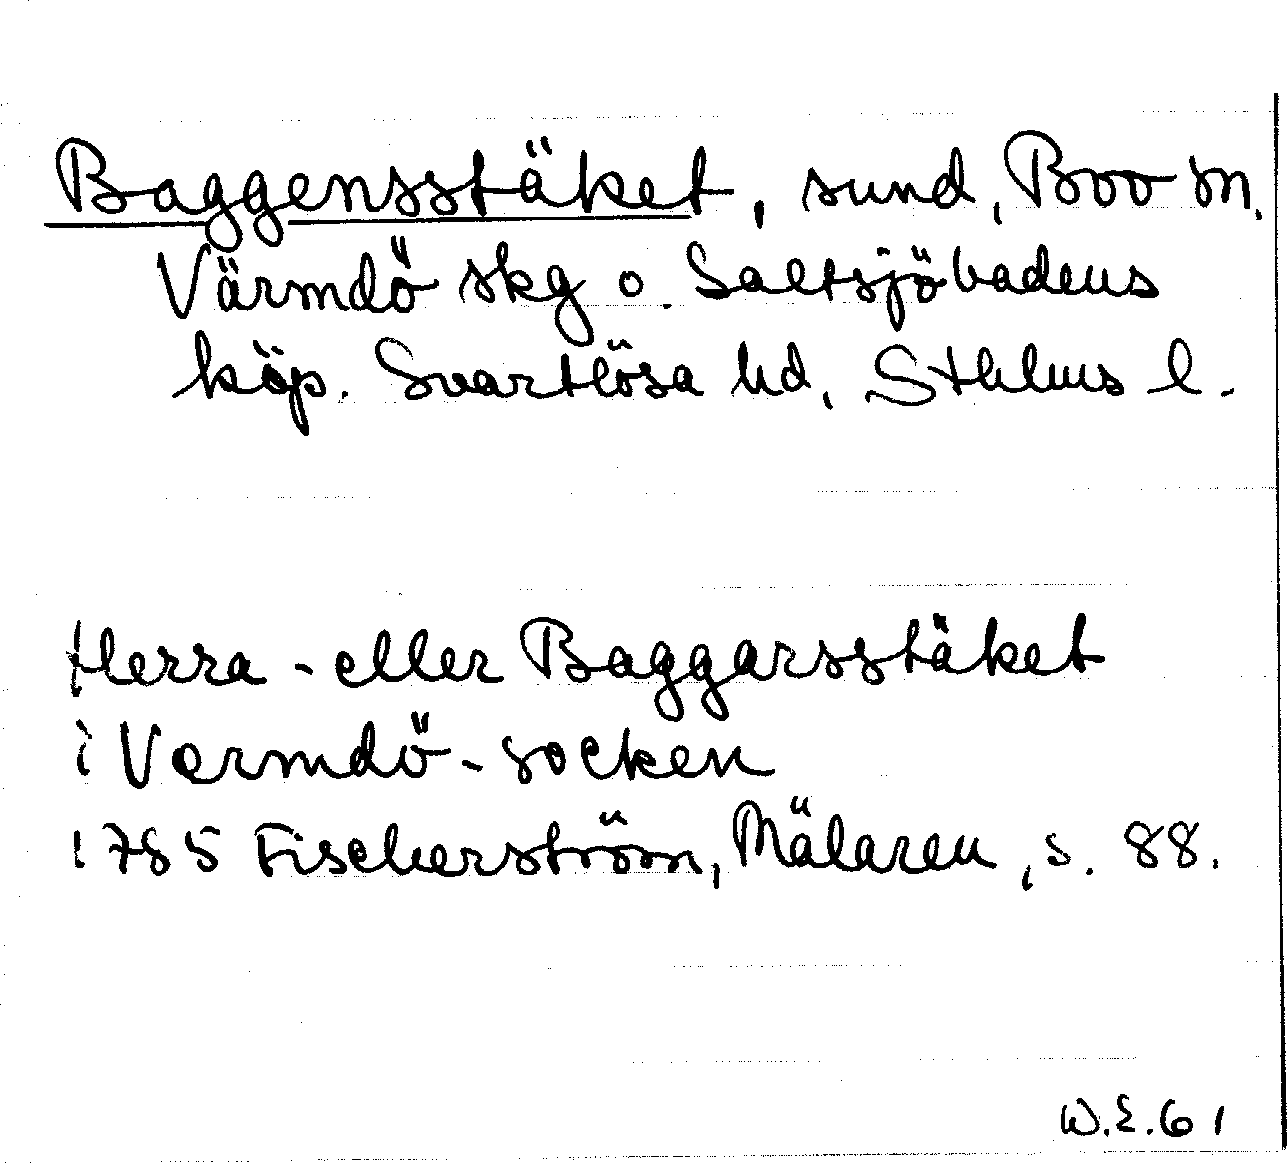 Baggensstäket, sund, Boo sn,
Värmdö skg o. Saltsjöbadens
köp. Svartlösa hd, Sthlms l.
Herra- eller Baggarsstäket
i Vermdö-socken
1785 Fischerström, Mälaren, s. 88.
W.E.61